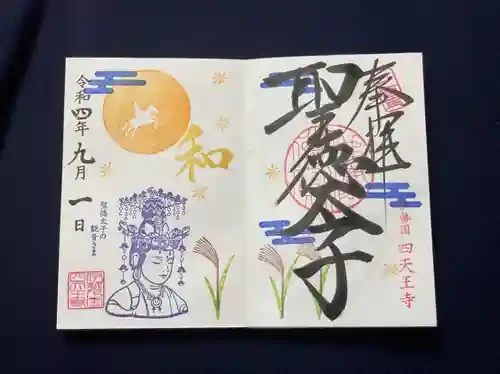 奉拝
聖徳太子
佛国
四天王寺
和
令和四年九月一日
聖徳太子の
観音さま